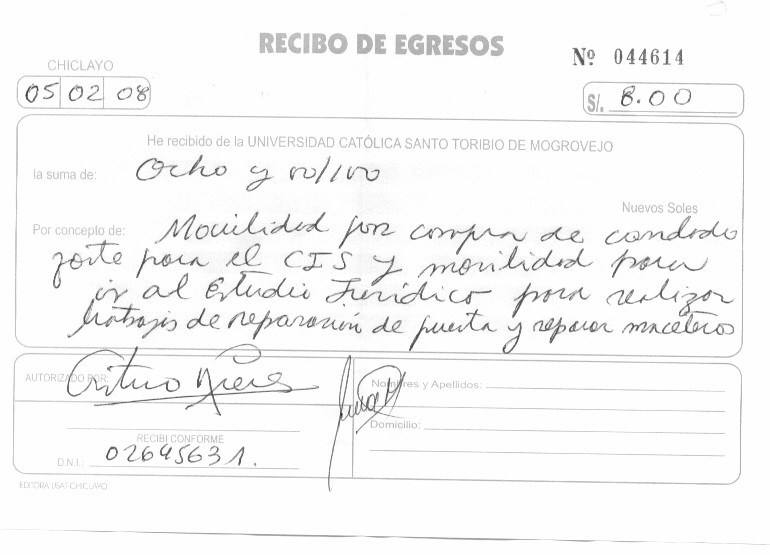 RECIBO DE EGRESOS
Nº 044614
CHICLAYO
05 02 08
S/. 8.00
He recibido de la UNIVERSIDAD CATÓLICA SANTO TORIBIO DE MOGROVEJO
la suma de: Ocho y 00/100
Nuevos Soles
Por concepto de: Movilidad por compra de candado
forte para el CIS y movilidad para
ir al Estudio Jurídico para realizar
trabajos de reparación de puerta y reparar maceteros
AUTORIZADO POR:
Nombres y Apellidos:
Domicilio:
RECIBI CONFORME
D.N.I.: 02645631.
EDITORA USAT-CHICLAYO